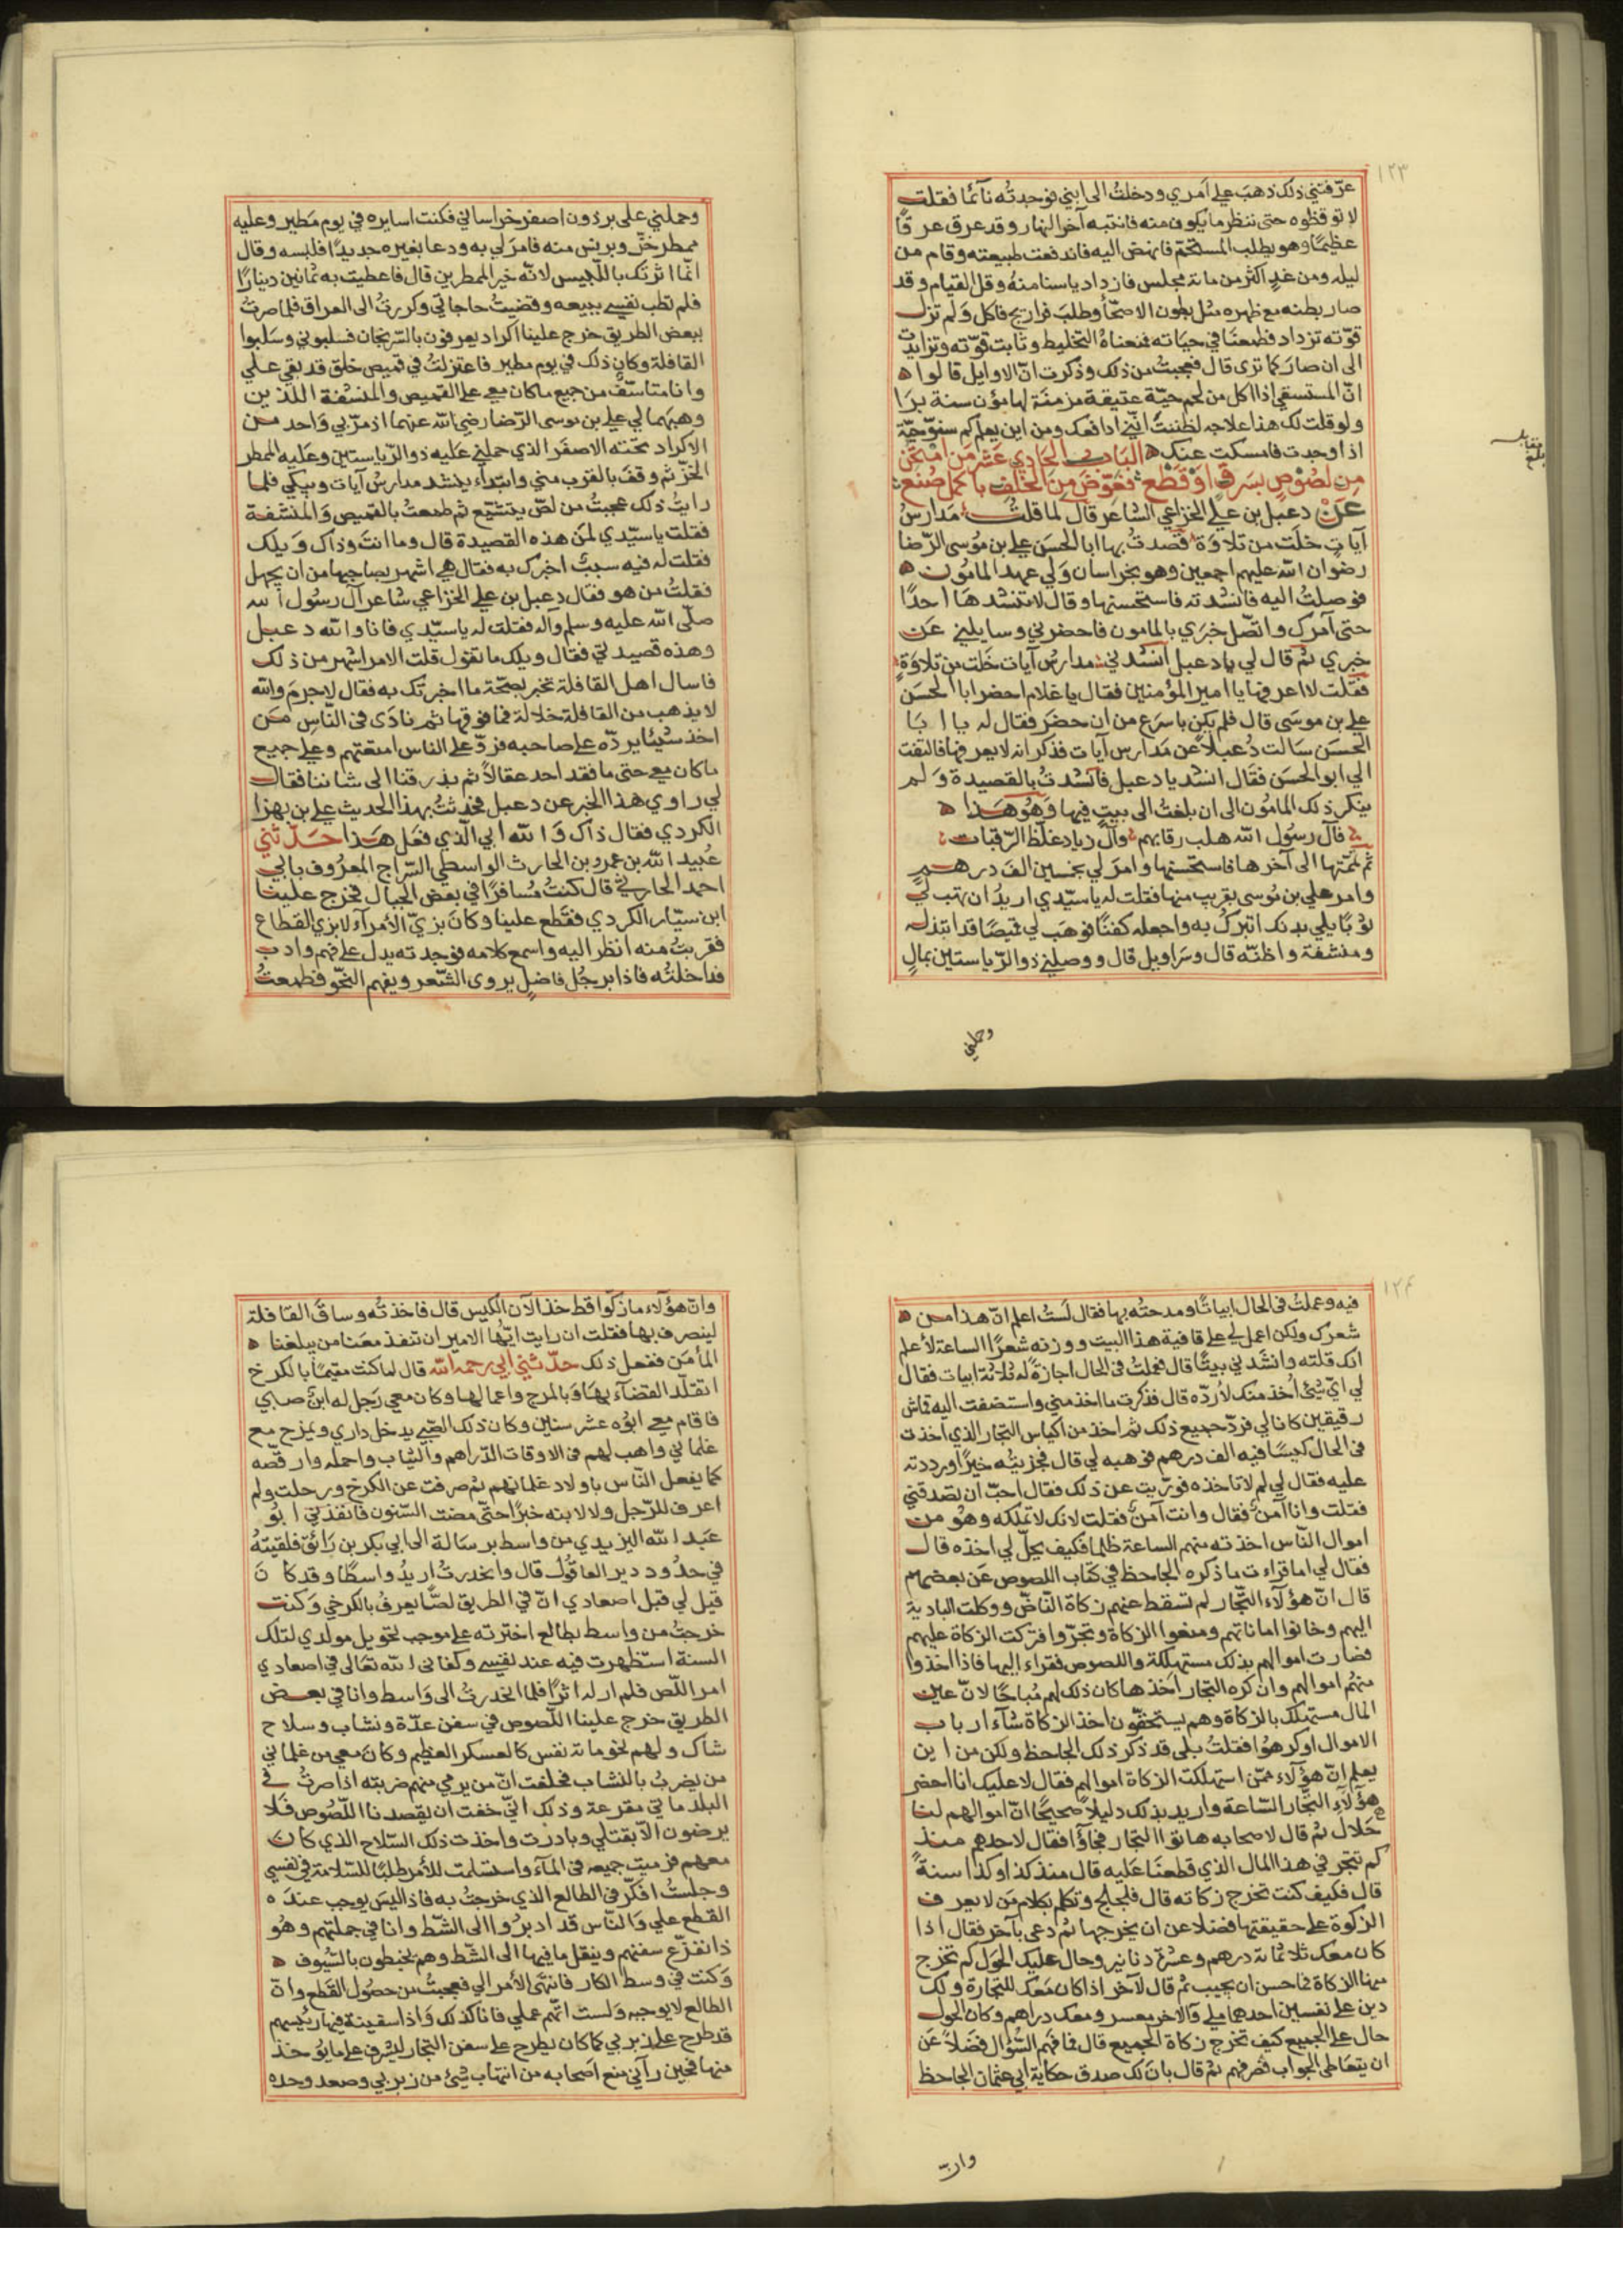 ١٢٣
عرّفتني ذلك ذهب علي امري ودخلتُ الى ابني فوجدتُه نآئمًا فقلت
لا توقظوه حتى ننظر ما يكون منه فانتبه آخر النهار وقد عرق عرقًا
عظيمًا وهو يطلب المستحم فانهض اليه فاندفعت طبيعته وقام من
ليله ومن غدٍ اكثر من مائة مجلس فازداد ياسنا منهُ وقل القيام وقد
صار بطنه مع ظهره مثل بطون الاصحّآ وطلبَ فراريج فاكل ولم تزل
قوّته تزداد فطمعنَا في حيَاته فمنعناهُ التخليط وثابت قوّته وتزايدت
الى ان صار كما ترى قال فعجبتُ من ذلك وذكرت انّ الاوايل قالوا ه
انّ المستسقي اذا اكل من لحم حيّة عتيقة مزمنَة لها مؤن سنة برَا
ولو قلت لك هذا علاجه لظننتُ انّي ادافعك ومن اين يعلم كم سنو حيّة
اذا وجدت فامسكت عنك ه البَاب الحَادي عَشر مَن امْتحن
مِن لصُوْصٍ بسَرقٍ اوْ قطْع ؛ فعَوّضَ مِنَ الخلف باجمل صُنع ؛
عَنْ دعبل بن علي الخزاعي الشاعر قال لما قلتُ؛ مَدارسُ
آياتٍ خلَت من تلاوَة قصدتُ بها ابا الحسَن علي بن موُسى الرّضا
رضوان الله عليهم اجمعين وهو بخراسان وَلي عهد المامُون ه
فوصلتُ اليه فانشدته فاستحسنها وقال لا تنشدهَا احدًا
حتى آمرك واتّصل خبَري بالمامون فاحضرني وسايلني عَن
خبري ثم قال لي يا دعبل انشدني؛ مدارسُ آيات خَلت من تلاوَةٍ
فقلت لا اعرفها يا امير المؤمنين فقال يا غلام احضر ابا الحسَن
علي بن موسَى قال فلم يكن باسرَع من ان حضَر فقال له يا ابَا
الحسَن سَالت دُعبلاً عن مَدارس آيات فذكر انه لا يعرفها فالتفت
الي ابو الحسَن فقَال انشد يا دعبل فانشدتُ بالقصيدة وَلم
ينكر ذلك المامُون الى ان بلغتُ الى بيتٍ فيها وَهُو هَذا ه
؛ فآل رسوُل الله هلب رقابهم ؛ وآل زياد غلّظ الرّقبات ؛
ثم تمّتها الى آخرها فاستحسَنها وامرَ لي بخمسين الفَ درهم
وامر علي بن موُسى بقريب منها فقلت له يا سيّدي اريدُ ان تهب لي
ثوبًا يلي بدنك اتبركُ به واجعله كفنًا فوهَب لي قميصًا قد ابتذله
ومنشفة واظنّه قال وسَراويل قال ووصلني ذو الرّياستين بمالٍ
وحملني
بلغ مقابله
وحملني على برذون اصفر خراساني فكنت اسايره في يوم مَطير وعليه
ممطر خزّ وبرنس منه فامرَ لي به ودعا بغيره جديدًا فلبسه وقال
انّما اثرتك باللّبيس لانّه خير الممطرين قال فاعطيت به ثمانين دينارًا
فلم تطب نفسي ببيعه وقضيتُ حاجاتي وكررتُ الى العراق فلما صرتُ
ببعض الطريق خرج علينا اكراد يعرفون بالسّرنجان فسلبوني وسَلبوا
القافلة وكان ذلك في يوم مطير فاعتزلتُ في قميص خلق قد بقي علي
وانا متاسّف من جميع ما كان معي على القميص والمنشفة اللذين
وهبَهما لي علي بن موسى الرّضا رضي الله عنهما اذ مرّ بي وَاحد من
الاكراد تحته الاصفَر الذي حملني عَليه ذو الرّياستين وعَليه الممطر
الخزّ ثم وقفَ بالقرب مني وابتداء ينشد مدارسُ آيات ويبكي فلما
رايتُ ذلك عجبتُ من لصّ يتشيّع ثم طمعتُ بالقميص وَالمنشفة
فقلت يا سيّدي لمَن هذه القصيدة قال وما انتَ وذاك وَيلك
فقلت له فيه سببٌ اخبرك به فقال هي اشهر بصاحبها من ان يجهل
فقلتُ من هو فقال دعبل بن علي الخزاعي شاعر آل رسُول الله
صلّى الله عليه وسلم وآله فقلت له يا سيّدي فانا والله دعبل
وهذه قصيدتي فقال ويلك ما تقول قلت الامر اشهر من ذلك
فاسال اهل القافلة تخبر بصحّة ما اخبرتك به فقال لا جرمَ والله
لا يذهب من القافلة خلالة فما فوقها ثم نادَى في النّاسِ مَن
اخذ شيئا يردّه على صاحبه فردّ على الناس امتعتهم وعلي جميع
ما كان معي حتى ما فقد احد عقالاً ثم بذرقنا الى شاننا فقال
لي راوي هذا الخبر عن دعبل فحدثتُ بهذا الحديث علي بن بهزا
الكردي فقال ذاك وَالله ابي الّذي فعَل هَذا حَدّثني
عُبيد الله بن عمرو بن الحارث الواسطي السّراج المعرُوف بابي
احمد الحارثي قال كنتُ مُسافرًا في بعض الجبال فخرج علينا
ابن سيّار الكردي فقَطع علينا وكانَ بزيّ الأمرآء لا بزي القطاع
فقربتُ منه انظر اليه واسمع كلامه فوجدته يدل على فهم وادب
فداخلتُه فاذا برجُل فاضلٍ يروى الشّعر ويفهم النحّو فطمعتُ
١٢٤
فيه وعملتُ في الحال ابياتًا ومدحتُه بها فقال لَستُ اعلم انّ هذا من ه
شعرك ولكن اعمل لي على قافية هذا البيت ووزنه شعرًا الساعة لأعلم
انك قلته وانشَدني بيتًا قال فعملتُ في الحال اجازةً له ثلاثة ابيات فقال
لي ايّ شئ اُخذ منك لأردّه قال فذكرت ما اخذ مني واستضفت اليه قماش
رفيقين كانا لي فردّ جميع ذلك ثم اخذ من اكياس التجار الذي اخذت
في الحال كيسًا فيه الف درهم فوهبه لي قال فجزيتُه خيرًا ورددته
عليه فقال لي لم لا تاخذه فورّيت عن ذلك فقال احبّ ان تصدقني
فقلت وانا آمن فقال وانت آمنٌ فقلت لانك لا تملكه وهُو من
اموال النّاس اخذته منهم الساعة ظلما فكيف يحلّ لي اخذه قال
فقال لي اما قراءت ما ذكره الجاحظ في كتاب اللصوص عَن بعضهم
قال انّ هؤلآء التجّار لم تسقط عنهم زكاة النّاضّ ووكلت البادية
اليهم وخانوا اماناتهم ومنعوا الزكاة وتجرّوا فتركت الزكاة عليهم
فصارت اموالهم بذلك مستهلكة واللصوص فقراء اليها فاذا اخذوا
منهُم اموالهم وان كره التجّار اخذها كان ذلك لهم مُباحًا لانّ عين
المال مستهلك بالزكاة وهم يستحقّون اخذ الزكاة شآء ارباب
الاموال او كرهوُا فقلتُ بلى قد ذكر ذلك الجاحظ ولكن من اين
يعلم انّ هؤلاء ممّن استهلكت الزكاة اموالهم فقال لا عليك انا احضر
هؤلآء التجّار السّاعة واريد بذلك دليلاً صحيحًا انّ اموالهم لنا
حَلال ثم قال لاصحابه هاتوا التجار فجاؤا فقال لاحدهم منذ
كم تتجر في هذا المال الذي قطعنَا عَليه قال منذ كذا وكذا سنةً
قال فكيف كنت تخرج زكاته قال فلجلج وتكلم بكلام مَن لا يعرف
الزكوة على حقيقتها فضلا عن ان يخرجها ثم دعى بآخر فقال اذا
كان معك ثلاثمائة درهم وعشرة دنانير وحال عليك الحَول كم تخرج
منها الزكاة فما حسن ان يجيب ثم قال لآخر اذا كان مَعك للتجارة ولك
دين على نفسين احدهما ملي والآخر معسر ومعك دراهم وكان الحول
حال على الجميع كيف تخرج زكاة الجميع قال فما فهم السُّؤال فضَلاً عَن
ان يتعَاطى الجواب فصَرفهم ثم قال بانَ لك صدق حكاية ابي عثمان الجاحظ
وانّ
وانّ هؤلآء ما زكّوا قط خذ الآن الكيس قال فاخذتُه وساقَ القافلة
لينصرف بها فقلت ان رايت ايّها الامير ان تنفذ معَنا من يبلغنا ه
المأمَن ففعل ذلك حدّثني ابي رحمه الله قال لما كنت مقيمًا بالكرخ
اتقلّد القضآء بهَا وَبالمرج واعمالها وكان معي رَجل له ابنٌ صبي
فاقام معي ابوُه عشر سنين وكان ذلك الصّبي يدخل داري ويمزح مع
غلماني واهب لهم في الاوقات الدّراهم والثياب واحمله وارقصّه
كما يفعل النّاس باولاد غلمانهم ثم صرفت عن الكرخ ورحلت ولم
اعرف للرّجل ولا لابنه خبرًا حتّى مضت السّنون فانفذني ابوُ
عبَد الله اليزيدي من واسط برسَالة الى ابي بكر بن رَائق فلقيتهُ
في حدُود دير العاقوُل قال وانحدرتُ اريدُ واسطًا وقد كانَ
قيل لي قبل اصعادي انّ في الطريق لصًّا يعرفُ بالكرخي وَكنت
خرجتُ من واسط بطالع اخترته على موجب تحويل مولدي لتلك
السنة استّظهرت فيه عند نفسي وكفاني الله تعَالى في اصعادي
امر اللّص فلم ار له اثرًا فلما انحدرتُ الى وَاسط وانا في بعض
الطريق خرج علينا اللّصوص في سفن عدّة ونشاب وسلاح
شاك ولهم نحو مائة نفس كالعسكر العظيم وكانَ معي من غلماني
من يضربُ بالنشاب فحلفت انّ من يرمي منهم ضربته اذا صرتُ في
البلد مائتي مقرعة وذلك انيّ خفت ان يقصدنا اللّصُوص فَلا
يرضون الّا بقتلي وبادرت واخذت ذلك السّلاح الذي كان
معهم فرميت جميعه في المآء واستسلمت للأمر طلبًا للسّلامة في نفسي
وجلستُ افكّر في الطالع الذي خرجتُ به فاذا ليسَ يوجب عندَه
القطع علي وَالنّاس قد ادبرُوا الى الشّط وانا في جملتهم وهُو
ذا نفزّع سفنهم وينقل ما فيها الى الشّط وهم يخبطون بالسّيوف ه
وَكنت في وسط الكار فانتهَى الأمر الي فعجبتُ من حصُول القَطع وانّ
الطالع لا يوجبه وَلست اتّهم عملي فانا كذلك وَاذا سفينة فيها رئيسهم
قد طرح على زبربي كما كان يطرح على سفن التجار ليشرف على ما يؤخذ
منها فحين رآني منع اصَحابه من انتهاب شئ من زبربي وصعد وحده